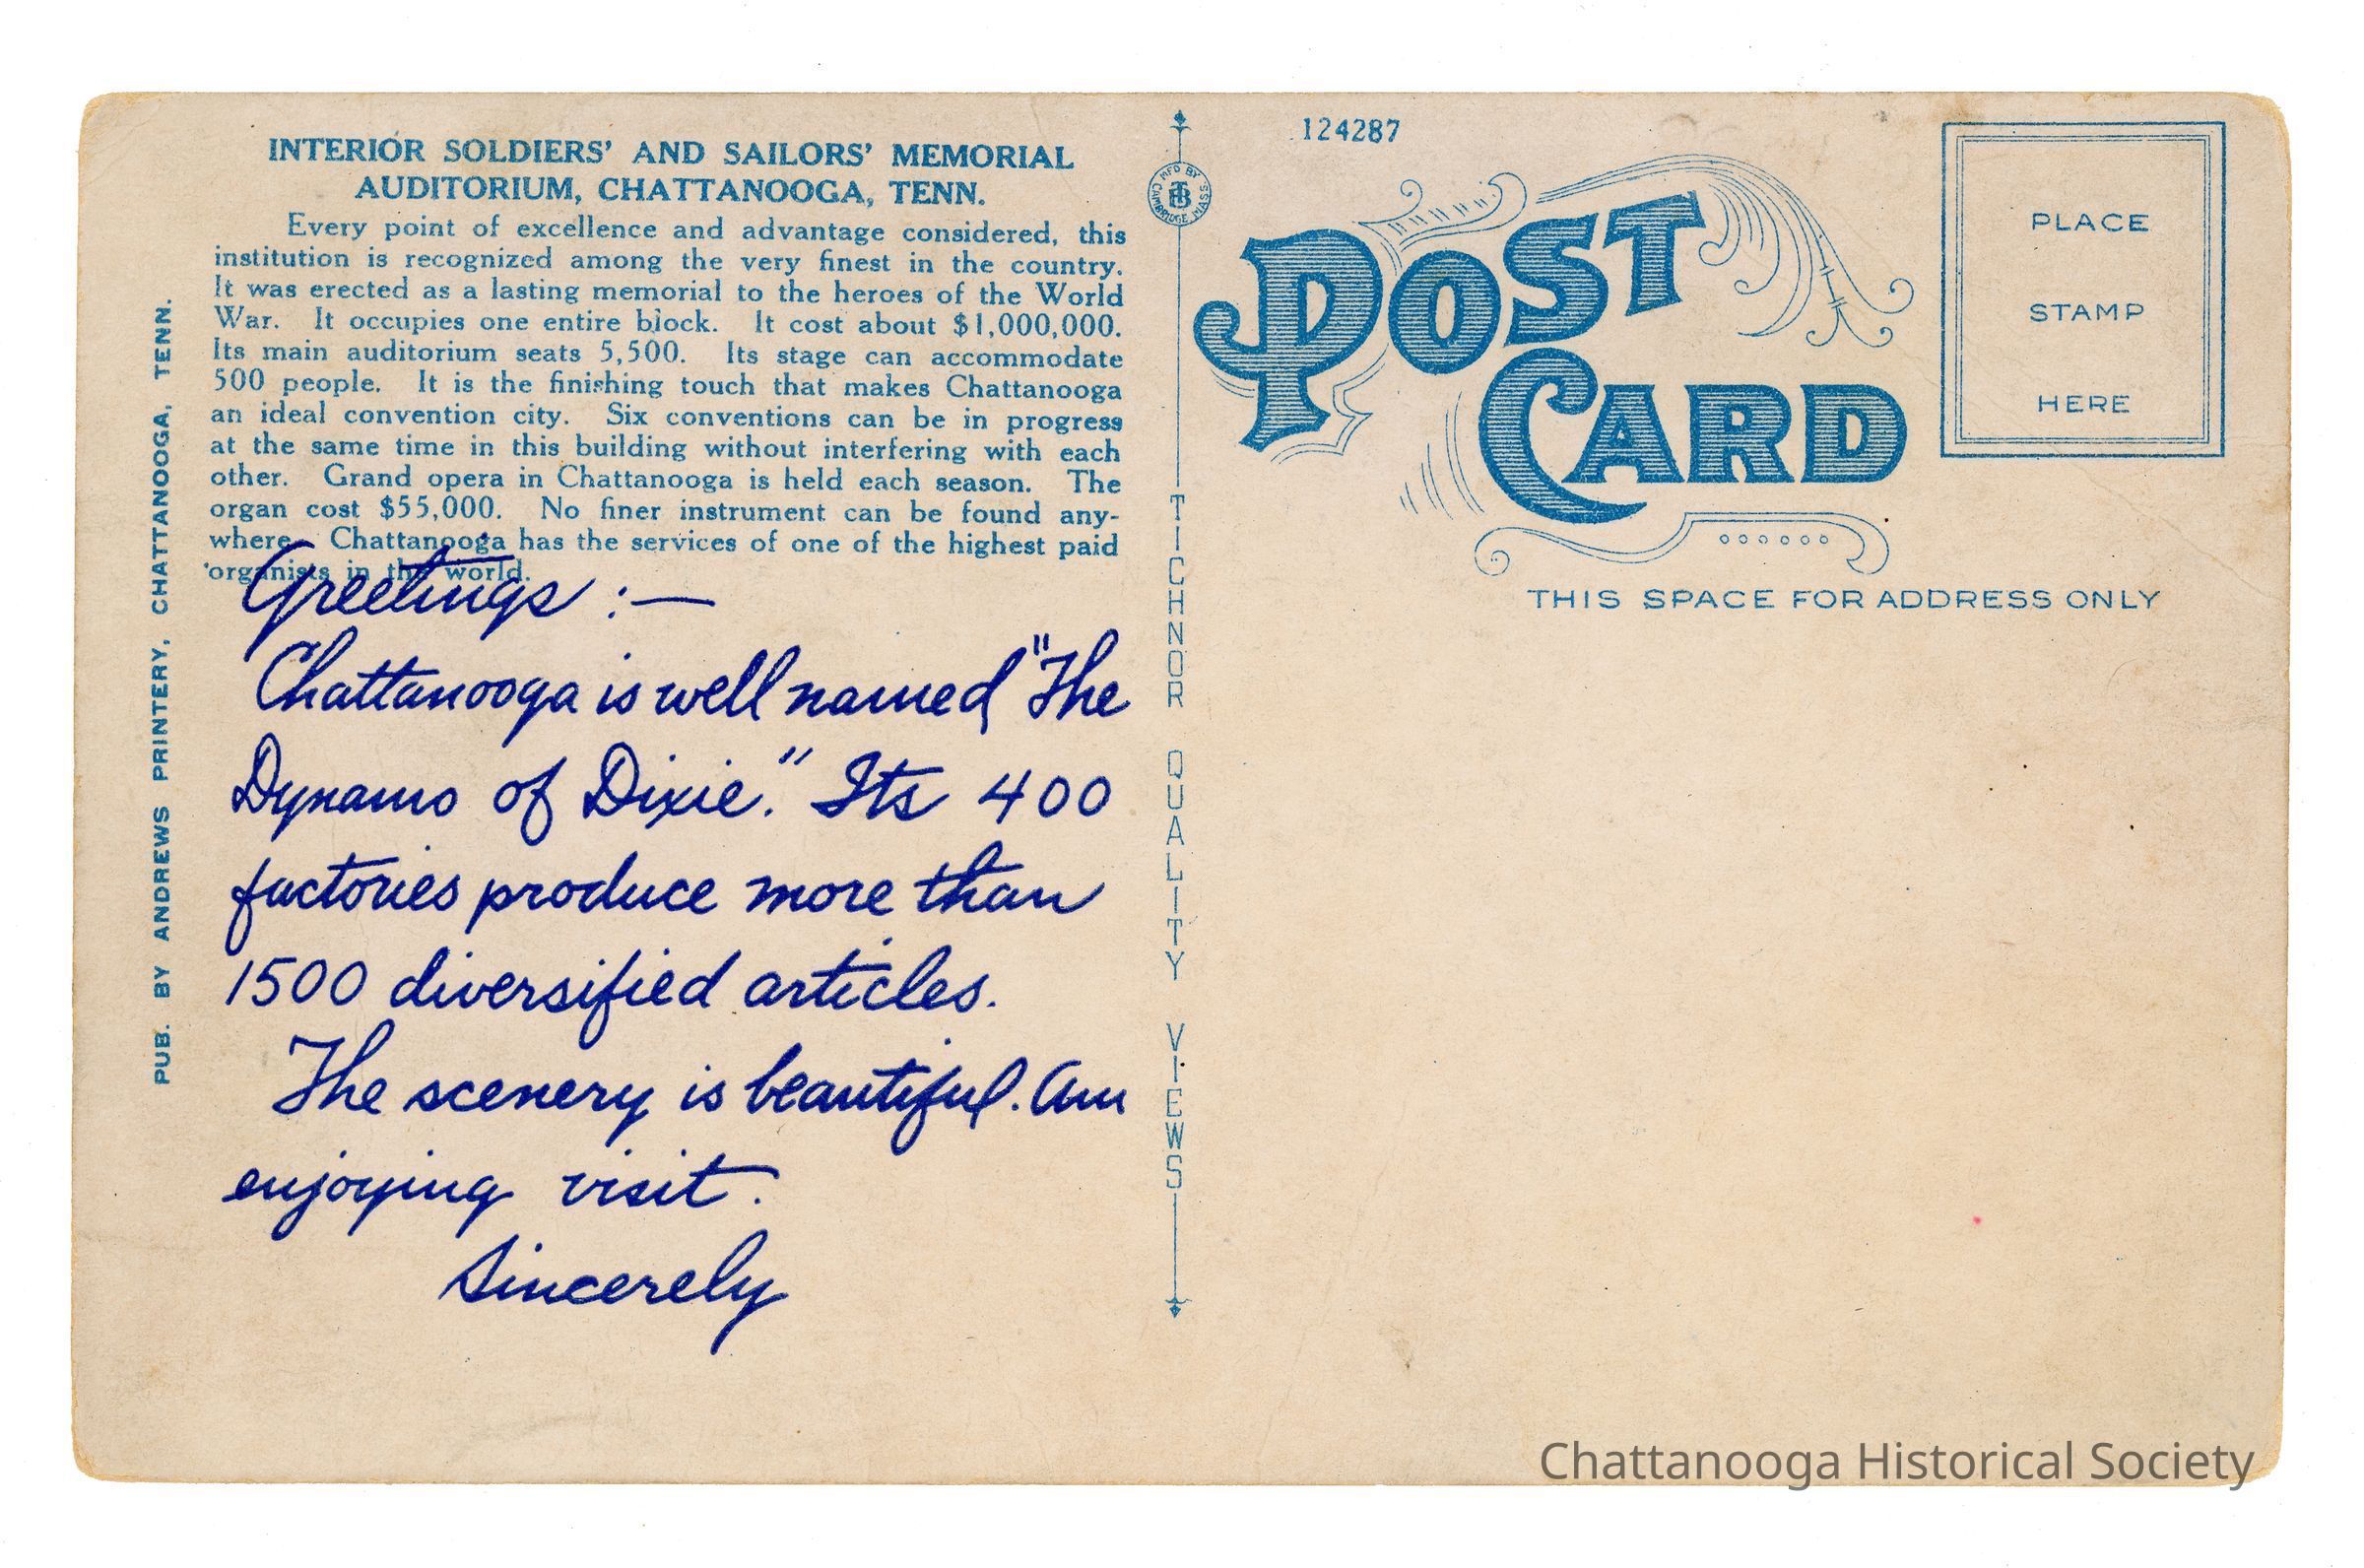 INTERIOR SOLDIERS' AND SAILORS' MEMORIAL
AUDITORIUM, CHATTANOOGA, TENN.
Every point of excellence and advantage considered, this
institution is recognized among the very finest in the country.
It was erected as a lasting memorial to the heroes of the World
War. It occupies one entire block. It cost about $1,000,000.
Its main auditorium seats 5,500. Its stage can accommodate
500 people. It is the finishing touch that makes Chattanooga
an ideal convention city. Six conventions can be in progress
at the same time in this building without interfering with each
other. Grand opera in Chattanooga is held each season. The
organ cost $55,000. No finer instrument can be found any-
where. Chattanooga has the services of one of the highest paid
organists in the world.
Greetings :—
Chattanooga is well named "The
Dynamo of Dixie." Its 400
factories produce more than
1500 diversified articles.
The scenery is beautiful. Am
enjoying visit.
Sincerely
PUB. BY ANDREWS PRINTERY, CHATTANOOGA, TENN.
MFD BY
TB
CAMBRIDGE MASS
TICHNOR QUALITY VIEWS
124287
POST
CARD
PLACE
STAMP
HERE
THIS SPACE FOR ADDRESS ONLY
Chattanooga Historical Society